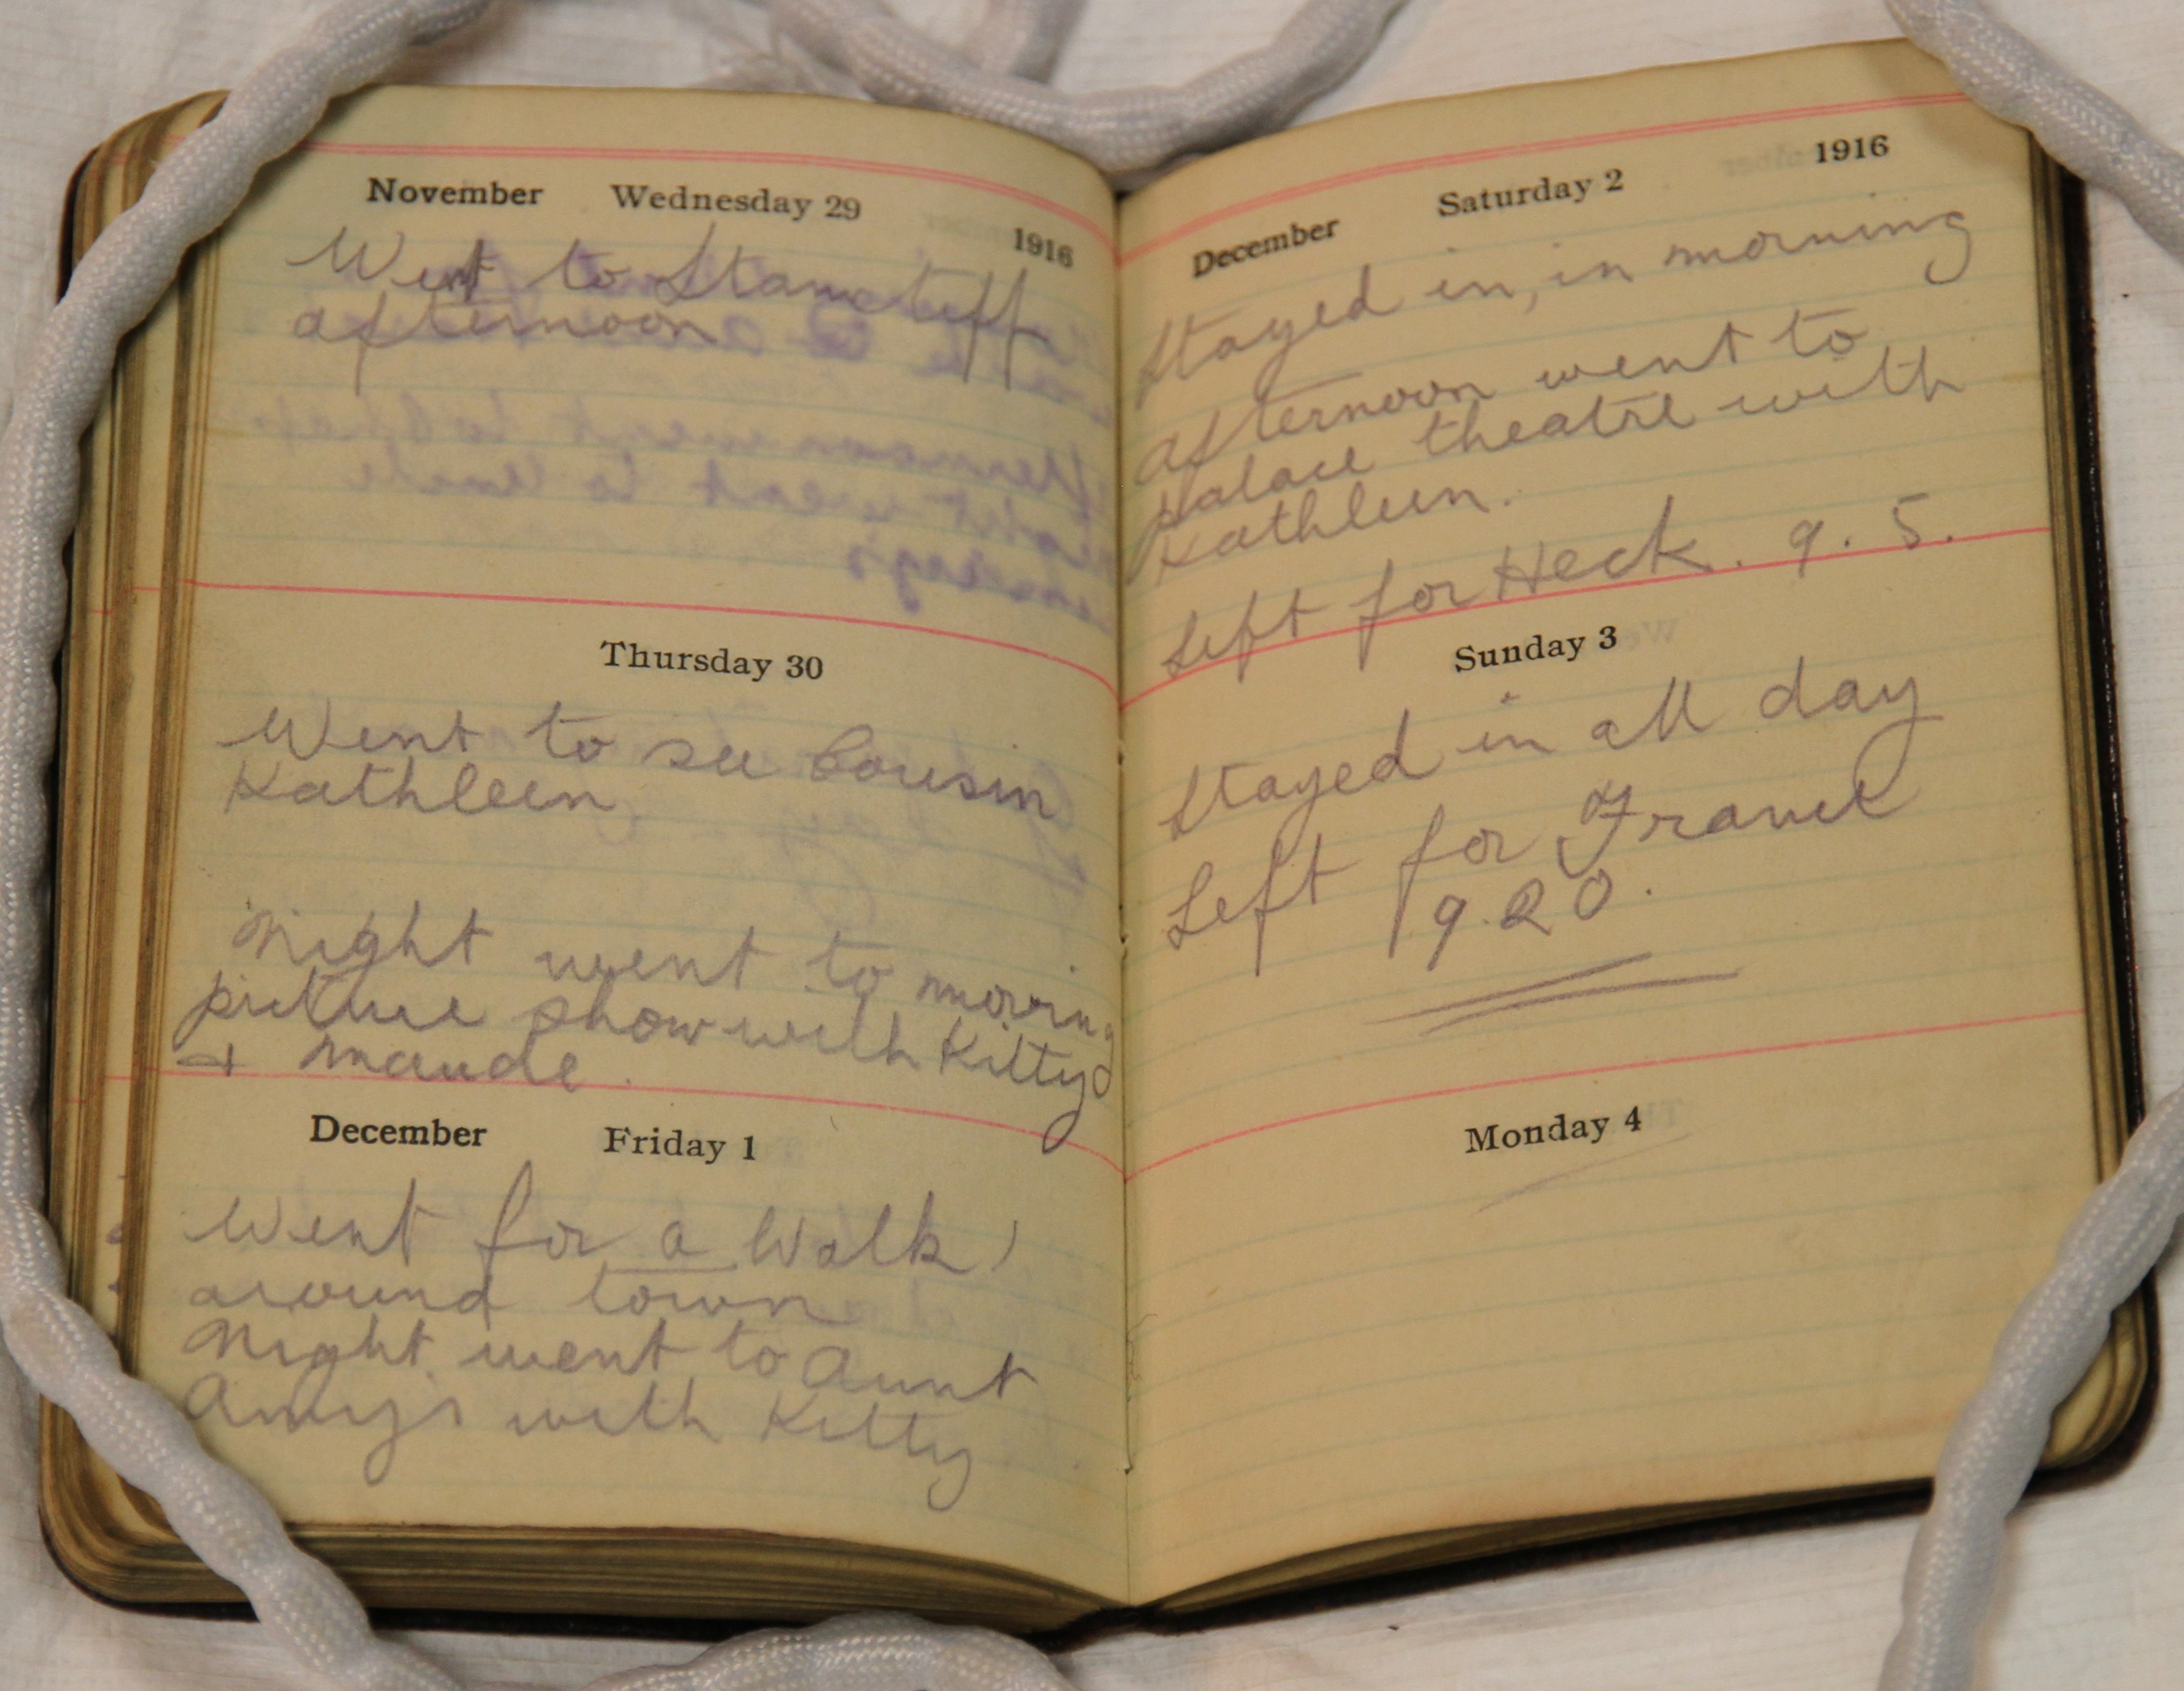 November Wednesday 29 1916
Went to Stancliff
afternoon
Thursday 30
Went to see Cousin
Kathleen
Night went to moving
picture show with Kitty
+ Maude.
December Friday 1
Went for a Walk
around town
Night went to Aunt
Amy's with Kitty
December Saturday 2 1916
Stayed in, in morning
afternoon went to
palace theatre with
Kathleen.
Left for Heck. 9. 5.
Sunday 3
Stayed in all day
Left for France
9.20.
Monday 4